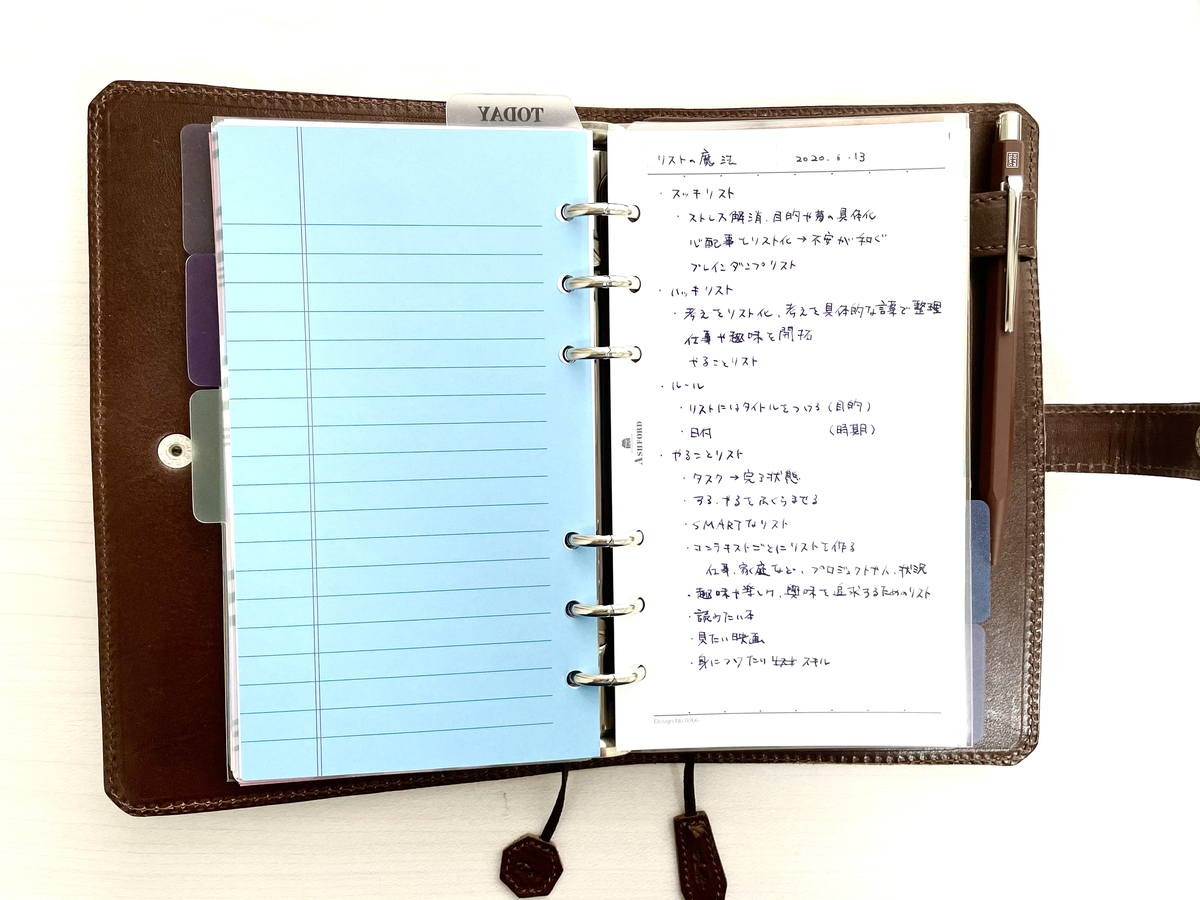 TODAY
リストの魔法 2020.6.13
・スッキリスト
・ストレス解消、目的や夢の具体化
心配事をリスト化→不安が和ぐ
ブレインダンプリスト
・ハッキリスト
・考えをリスト化、考えを具体的な言葉で整理
仕事や趣味を開拓
やることリスト
・ルール
・リストにはタイトルをつける(目的)
・日付 (時期)
・やることリスト
・タスク→完了状態
・する、やるをふくらませる
・SMARTなリスト
・コンテキストごとにリストを作る
仕事、家庭など、プロジェクトや人、状況
・趣味や楽しみ、興味を追求するためのリスト
・読みたい本
・見たい映画
・身につけたい スキル
ASHFORD
Design No.